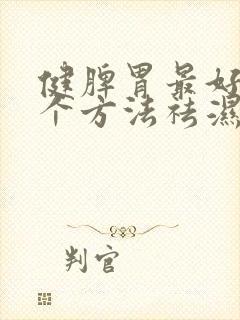 健脾胃最好
个方法祛濕
判官